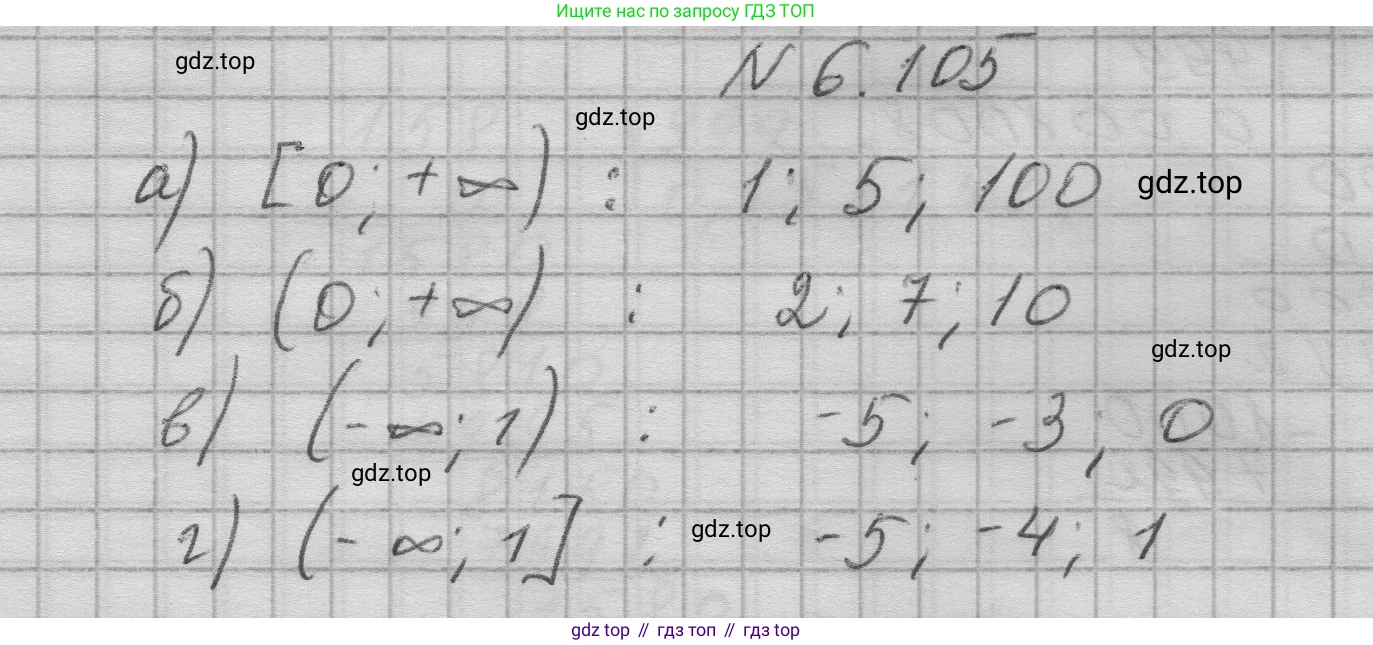 Ищите нас по запросу ГДЗ ТОП
gdz.top
N 6.105
gdz.top
а) [0; +∞) : 1; 5; 100 gdz.top
б) (0; +∞) : 2; 7; 10
gdz.top
в) (-∞; 1) : -5; -3; 0
gdz.top
г) (-∞; 1] : gdz.top -5; -4; 1
gdz top // гдз топ // gdz.top